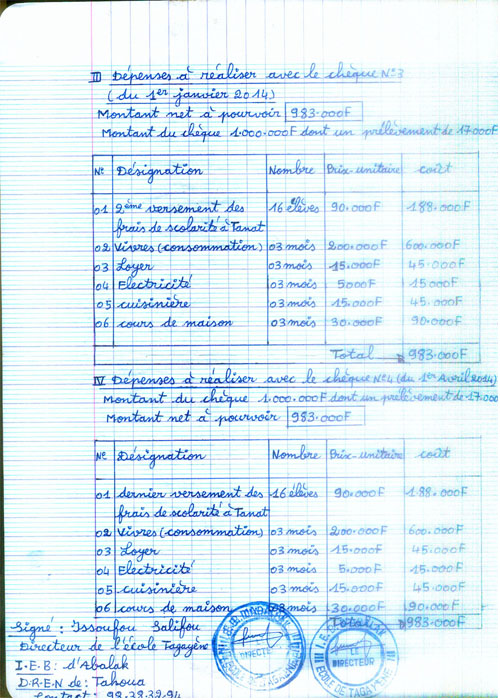 III Dépenses à réaliser avec le chèque N°3
(du 1er janvier 2014)
Montant net à pourvoir 983.000F
Montant du chèque 1.000.000F dont un prélèvement de 17.000F
N° Désignation Nombre Prix-unitaire coût
01 2ème versement des 16 élèves 90.000F 188.000F
frais de scolarité à Tanat
02 Vivres (consommation) 03 mois 200.000F 600.000F
03 Loyer 03 mois 15.000F 45.000F
04 Electricité 03 mois 5000F 15000F
05 cuisinière 03 mois 15.000F 45.000F
06 cours de maison 03 mois 30.000F 90.000F
Total 983.000F
IV Dépenses à réaliser avec le chèque N°4 (du 1er Avril 2014)
Montant du chèque 1.000.000F dont un prélèvement de 17.000
Montant net à pourvoir 983.000F
N° Désignation Nombre Prix-unitaire coût
01 dernier versement des 16 élèves 90.000F 188.000F
frais de scolarité à Tanat
02 Vivres (consommation) 03 mois 200.000F 600.000F
03 Loyer 03 mois 15.000F 45.000F
04 Electricité 03 mois 5.000F 15.000F
05 cuisinière 03 mois 15.000F 45.000F
06 cours de maison 03 mois 30.000F 90.000F
Total 983.000F
Signé : Issoufou Salifou
Directeur de l'école Tagayène
I.E.B : d'Abalak
D.R.E.N de : Tahoua
LE
DIRECTEUR